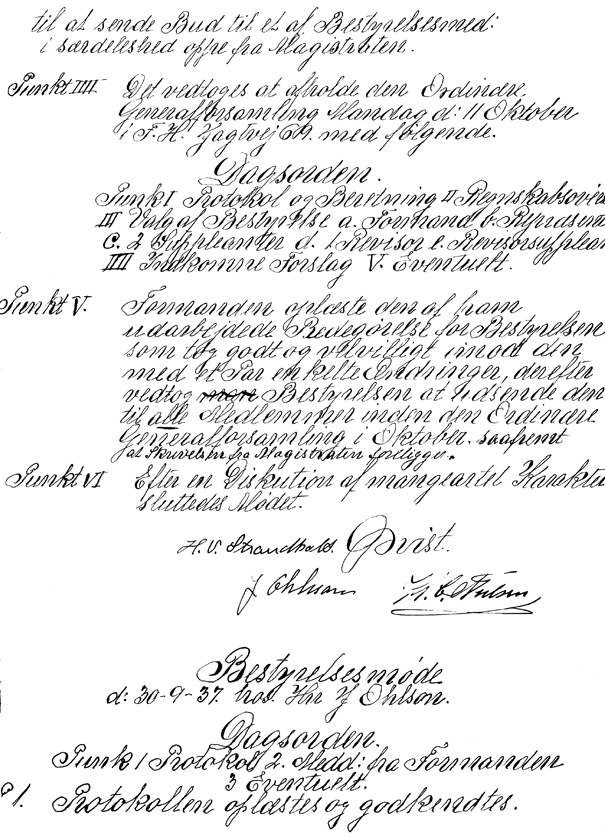 til at sende Bud til et af Bestyrelsesmed:
i særdeleshed opfre fra Magistraten.
Punkt IIII Det vedtoges at afholde den Ordinære
Generalforsamling Mandag d: 11 Oktober
i F. H. Jagtvej 69. med følgende.
Dagsorden.
Punk I Protokol og Beretning II Regnskabs
III Valg af Bestyrelse a. Formand b.
C. 2 Suppleanter d. 1 Revisor e. Revisorsupplean
IIII Indkomne Forslag V. Eventuelt.
Punkt V. Formanden oplæste den af ham
udarbejdede Redegørelse for Bestyrelsen
som tog godt og velvilligt imod den
med et Par enkelte Ændringer, derefter
vedtog Bestyrelsen at udsende den
til alle Medlemmer inden den Ordinære
Generalforsamling i Oktober. saafremt
at Skrivelsen fra Magistraten foreligger.
Punkt VI Efter en Diskution af mangeartet Karakter
sluttedes Mødet.
H. V. Strandhold. Qvist.
J Ohlson
Bestyrelsesmøde
d: 30-9-37. hos. Hr J Ohlson.
Dagsorden.
Punk 1 Protokol 2. Medd: fra Formanden
3 Eventuelt.
P 1. Protokollen oplæstes og godkendtes.